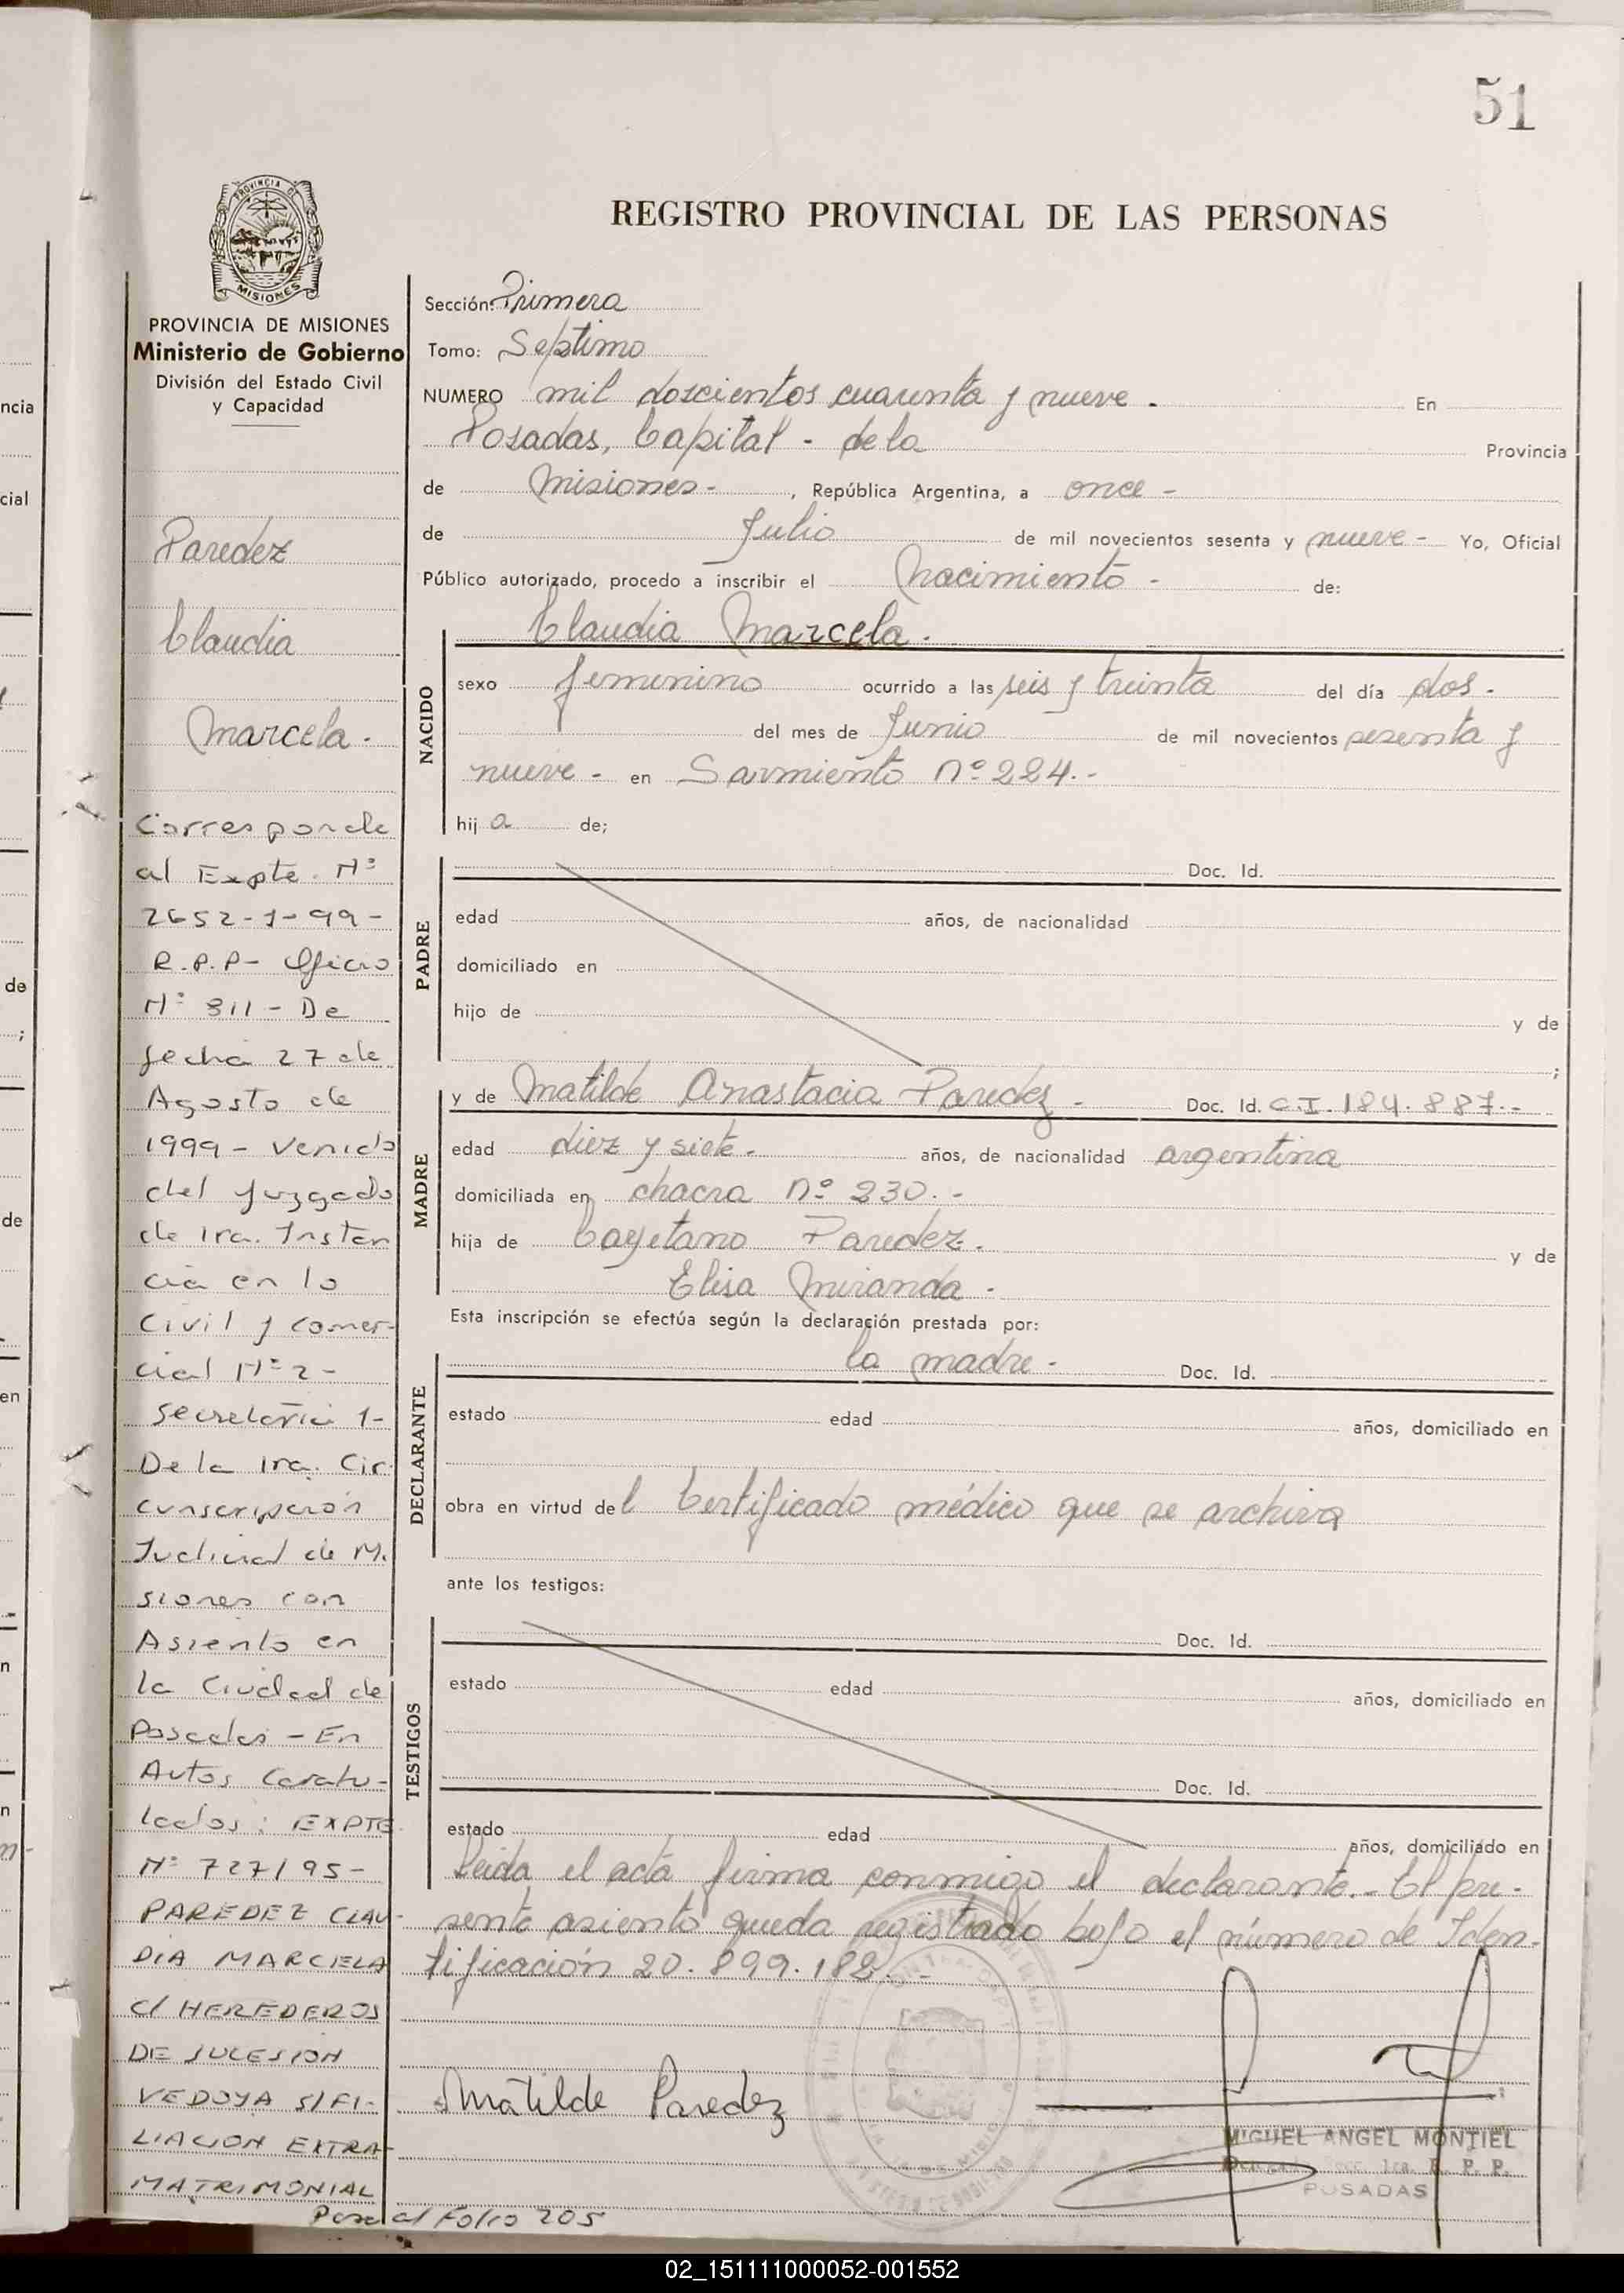 51
REGISTRO PROVINCIAL DE LAS PERSONAS
PROVINCIA DE MISIONES
Ministerio de Gobierno
División del Estado Civil
y Capacidad
Paredez
Claudia
Marcela.
Corresponde
al Expte. Nº
2652-1-99-
R.P.P- Oficio
Nº 311- De
fecha 27 de
Agosto de
1999- venido
del Juzgado
de 1ra. Instan
cia en lo
Civil y comer-
cial Nº 2-
Secretaria 1-
De la 1ra. Cir
cunscripción
Judicial de Mi
siones con
Asiento en
la Ciudad de
Posadas - En
Autos Caratu-
lados: EXPTE
Nº 727/95-
PAREDEZ CLAU-
DIA MARCELA
C/ HEREDEROS
DE SUCESION
VEDOYA S/FI-
LIACION EXTRA-
MATRIMONIAL
Pasa al Folio 205
Sección: Primera
Tomo: Septimo
NUMERO mil doscientos cuarenta y nueve. En
Posadas, Capital - de la Provincia
de Misiones-, República Argentina, a once-
de Julio de mil novecientos sesenta y nueve- Yo, Oficial
Público autorizado, procedo a inscribir el Nacimiento- de:
NACIDO
Claudia Marcela.
sexo femenino ocurrido a las seis y treinta del día dos.
del mes de Junio de mil novecientos sesenta y
nueve- en Sarmiento nº 224.-
hij a de;
PADRE
Doc. Id.
edad años, de nacionalidad
domiciliado en
hijo de y de
;
MADRE
y de Matilde Anastacia Paredez- Doc. Id. C.I. 184.887.-
edad diez y siete. años, de nacionalidad argentina
domiciliada en chacra nº 230.-
hija de Cayetano Paredez. y de
Elisa Miranda-
Esta inscripción se efectúa según la declaración prestada por:
DECLARANTE
la madre- Doc. Id.
estado edad años, domiciliado en
obra en virtud del Certificado médico que se archiva
ante los testigos:
TESTIGOS
Doc. Id.
estado edad años, domiciliado en
Doc. Id.
estado edad años, domiciliado en
Leida el acta firma conmigo el declarante.- El pre-
sente asiento queda registrado bajo el número de Iden-
tificación 20.899.182.-
Matilde Paredez
MIGUEL ANGEL MONTIEL
1ra. R. P. P.
POSADAS
02_151111000052-001552